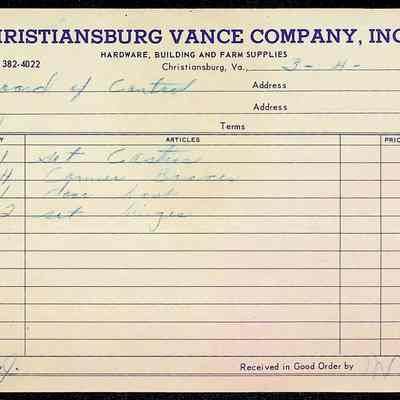 HRISTIANSBURG VANCE COMPANY, INC
HARDWARE, BUILDING AND FARM SUPPLIES
382-4022 Christiansburg, Va., 3-4-
Board of Control Address
Address
Terms
Y ARTICLES PRIC
1 set Casters
4 Corner Braces
1 door
2 set hinges
Received in Good Order by